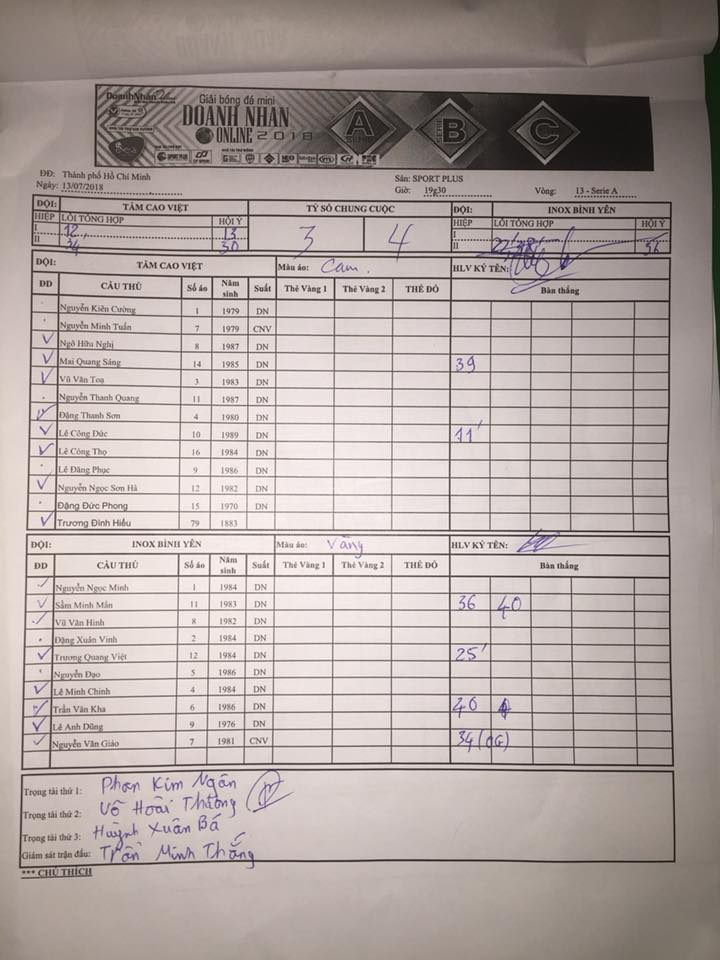 Giải bóng đá mini
DOANH NHÂN
ONLINE 2018
A B C
ĐĐ: Thành phố Hồ Chí Minh Sân: SPORT PLUS
Ngày: 13/07/2018 Giờ: 19g30 Vòng: 13 - Serie A
ĐỘI: TÂM CAO VIỆT TỶ SỐ CHUNG CUỘC ĐỘI: INOX BÌNH YÊN
HIỆP LỖI TỔNG HỢP HỘI Ý 3 4 HIỆP LỖI TỔNG HỢP HỘI Ý
I 12 13 I
II 34 30 II 36
ĐỘI: TÂM CAO VIỆT Màu áo: Cam. HLV KÝ TÊN:
ĐD CẦU THỦ Số áo Năm sinh Suất Thẻ Vàng 1 Thẻ Vàng 2 THẺ ĐỎ Bàn thắng
Nguyễn Kiên Cường 1 1979 DN
Nguyễn Minh Tuấn 7 1979 CNV
Ngô Hữu Nghị 8 1987 DN
Mai Quang Sáng 14 1985 DN 39
Vũ Văn Toạ 3 1983 DN
Nguyễn Thanh Quang 11 1987 DN
Đặng Thanh Sơn 4 1980 DN
Lê Công Đức 10 1989 DN 11'
Lê Công Thọ 16 1984 DN
Lê Đăng Phục 9 1986 DN
Nguyễn Ngọc Sơn Hà 12 1982 DN
Đặng Đức Phong 15 1970 DN
Trương Đình Hiếu 79 1883
ĐỘI: INOX BÌNH YÊN Màu áo: Vàng HLV KÝ TÊN:
ĐD CẦU THỦ Số áo Năm sinh Suất Thẻ Vàng 1 Thẻ Vàng 2 THẺ ĐỎ Bàn thắng
Nguyễn Ngọc Minh 1 1984 DN
Sầm Minh Mẫn 11 1983 DN 36 40
Vũ Văn Hinh 8 1982 DN
Đặng Xuân Vinh 2 1984 DN
Trương Quang Việt 12 1984 DN 25'
Nguyễn Đạo 5 1986 DN
Lê Minh Chinh 4 1984 DN
Trần Văn Kha 6 1986 DN 40
Lê Anh Dũng 9 1976 DN
Nguyễn Văn Giáo 7 1981 CNV 34 (OG)
Trọng tài thứ 1: Phan Kim Ngân
Trọng tài thứ 2: Võ Hoài Thương
Trọng tài thứ 3: Huỳnh Xuân Bá
Giám sát trận đấu: Trần Minh Thắng
*** CHÚ THÍCH